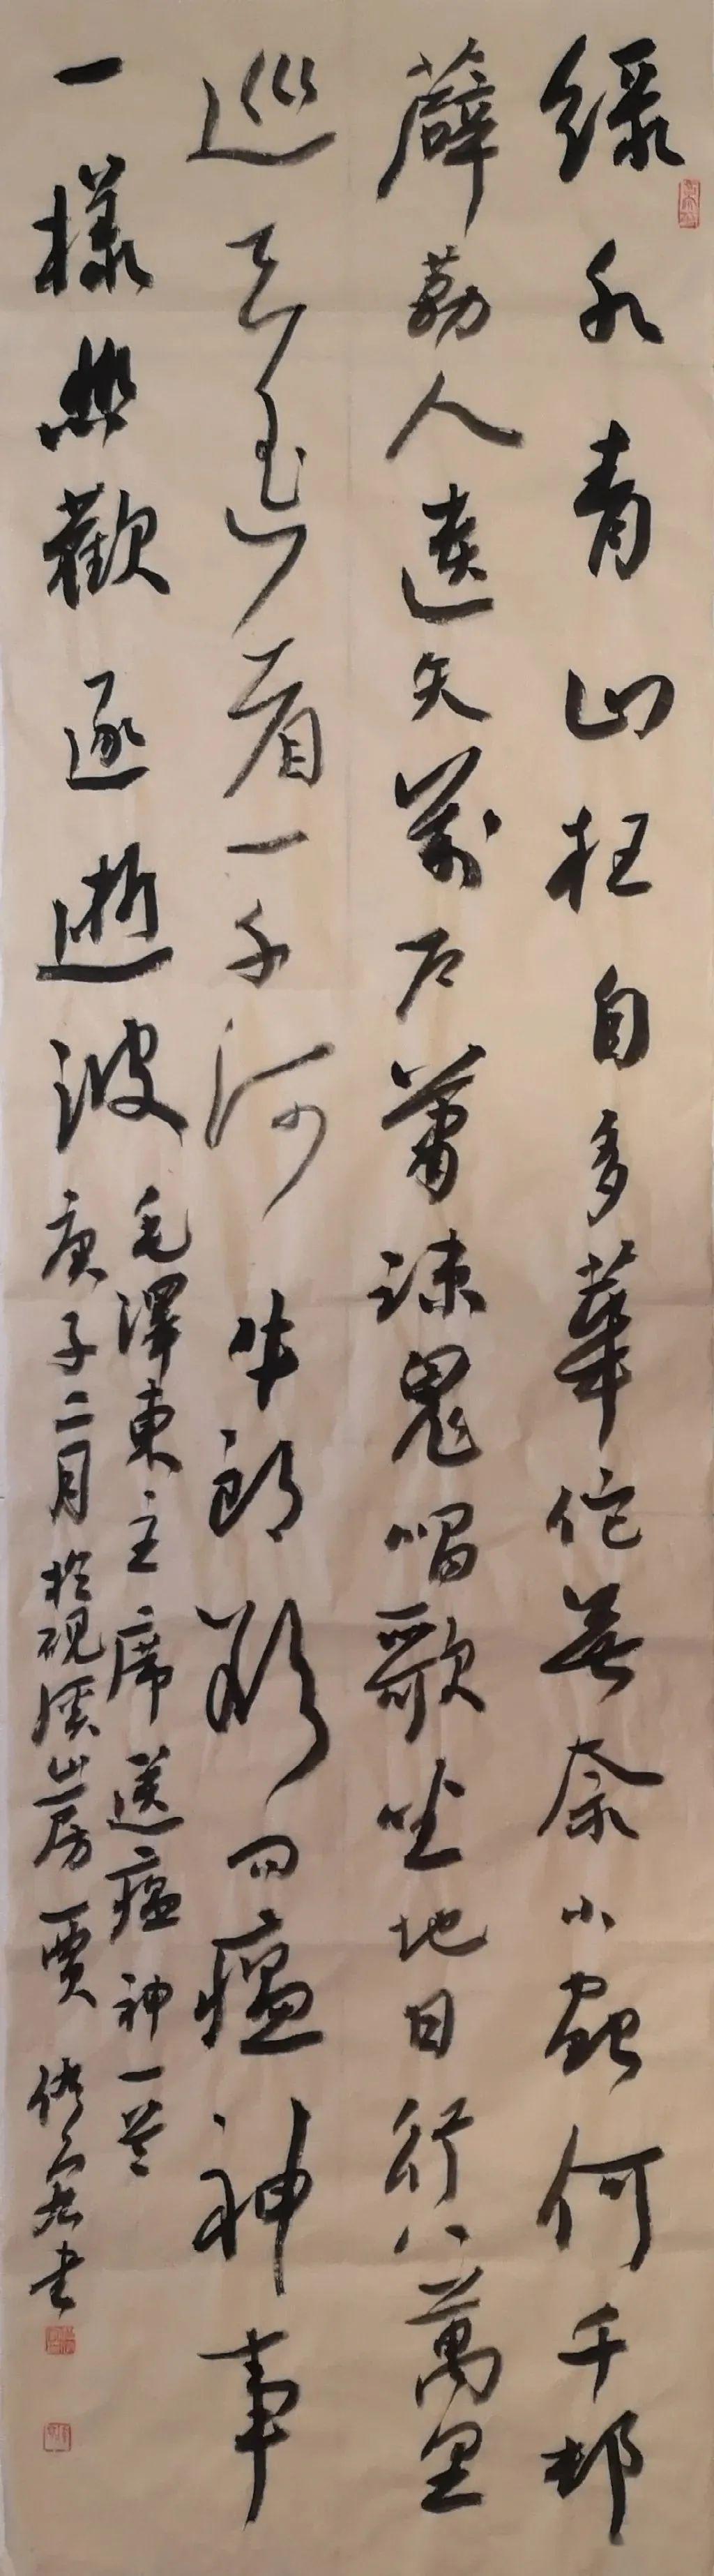 綠水青山枉自多華佗無奈小蟲何千邨
薜荔人遺矢萬戶蕭疎鬼唱歌坐地日行八萬里
巡天遙看一千河牛郎欲問瘟神事
一樣悲歡逐逝波
毛澤東主席送瘟神一首
庚子二月於硯溪山房賈書